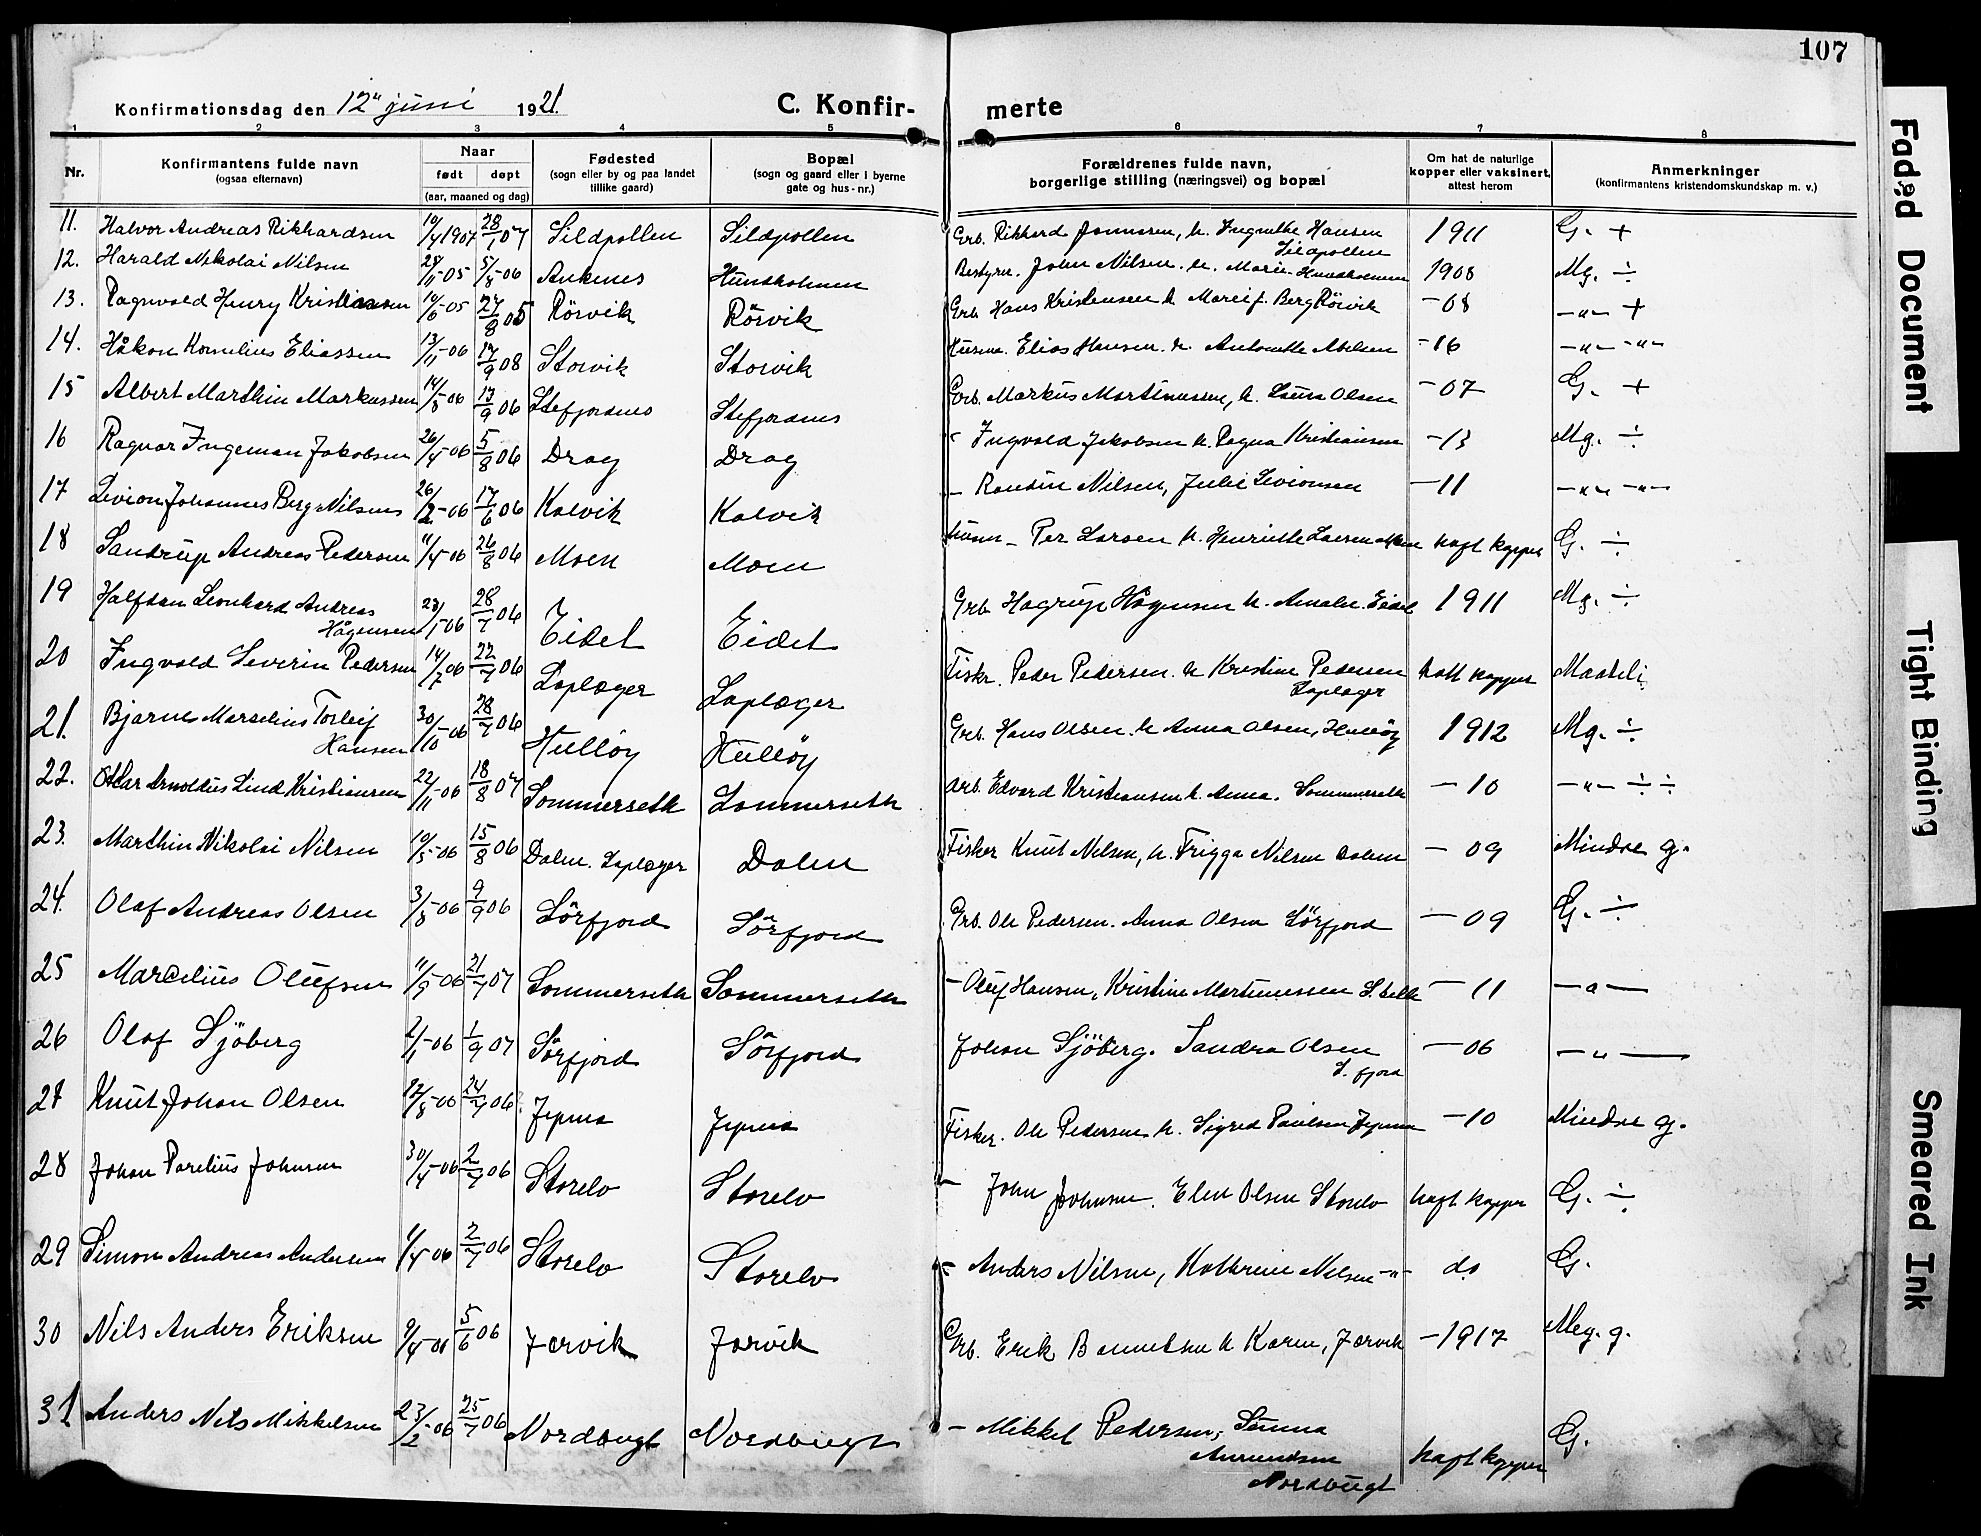 107
Konfirmationsdag den 12" juni 1921.
C. Konfir-merte
1 2 3 4 5 6 7 8
Nr.
Konfirmantens fulde navn
(ogsaa efternavn)
Naar
født døpt
(aar, maaned og dag)
Fødested
(sogn eller by og paa landet
tillike gaard)
Bopæl
(sogn og gaard eller i byerne
gate og hus-nr.)
Forældrenes fulde navn,
borgerlige stilling (næringsvei) og bopæl
Om hat de naturlige
kopper eller vaksinert,
attest herom
Anmerkninger
(konfirmantens kristendomskundskap m. v.)
11. Halvor Andreas Rikhardsen 10/4 1907 28/1 07 Sildpollen Sildpollen Grb. Rikhard Hansen Sildpollen 1911 G. +
12. Harald Nikolai Nilsen 24/11-05 5/8-06 Hundholmen Bestyrer. John Nilsen. h. Marie Hundholmen 1908 Mg. ÷
13. Ragnvald Henry Kristiansen 10/6-05 27/8 05 Rörvik Rörvik Grb. Hans Kristensen h. Berg Rörvik -08 -"- +
14. Håkon Kornelius Eliassen 13/11-06 17/9 08 Storvik Storvik Elias Hansen. h. -16 -"- -"-
15 Albert Marthin Markussen 14/8-06 13/9 06 Stefjordnes Stefjordnes Grb. Markus Martinussen, h. Laura Olsen -07 G. +
16 Ragnar Ingeman Jakobsen 26/4-06 5/8 06 Drag Drag - Ingvald Jakobsen h. Ragna Kristiansen -13 Mg. ÷
17 Johannes Berg Nilsen 26/2-06 17/6 06 Kalvik Kalvik - Nilsen, Julie -11 -"- -"-
18 Sandrup Andreas Pedersen 11/4-06 26/8 06 Moen Moen Per Larsen h. Henriette Larsen Moen haft kopper G. ÷
19 Halfdan Leonhard Andreas Hågensen 23/1-06 28/7 06 Eidet Eidet Grb. Hagrup Hågensen h. Amalie Eidet 1911 Mg. ÷
20 Ingvald Severin Pedersen 14/7-06 22/7 06 Laplæger Laplæger Fiskr. Peder Pedersen. h Kristine Pedersen Laplæger hatt kopper Maateli
21. Bjarne Marselius Torleif Hansen 30/10-06 28/7 06 Hulløy Hulløy Grb. Hans Olsen. h Anna Olsen, Hulløy 1912 Mg. ÷
22. Arnoldus Lind Kristiansen 22/11-06 18/8 07 Sommerseth Sommerseth Arb. Edvard Kristiansen h. Anna. Sommerseth -10 -"- ÷ ÷
23. Marthin Nikolai Nilsen 10/5-06 15/8 06 Dalen. Laplæger Dalen Fisker Knut Nilsen, h. Frigga Nilsen Dalen -09 Mindre g.
24. Olaf Andreas Olsen 3/8-06 9/9 06 Sörfjord Sörfjord Grb. Ole Pedersen. Anna Olsen Sörfjord -09 G. ÷
25 Marcelius Olufsen 11/9-06 21/7 07 Sommerseth Sommerseth - Oluf Hansen, Kristine Martinussen S.seth -11 -"-
26 Olaf Sjöberg 2/1-06 1/9 07 Sörfjord Sörfjord Johan Sjöberg. Sandra Olsen S. fjord -06 -"-
27 Knut Johan Olsen 12/8-06 24/7 06 Fisker. Ole Pedersen h. Sigred -10 Mindre g.
28 Johan Parelius Johnsen 30/4-06 2/7 06 Storelv Storelv - John Johnsen. Elen Olsen Storelv haft kopper G. ÷
29 Simon Andreas Andersen 1/4-06 2/7 06 Storelv Storelv - Anders Nilsen, Kathrine Nilsen -"- do G.
30 Nils Anders Eriksen 9/4-06 5/6 06 Jorvik Jorvik Grb. Erik h Karen, Jorvik -1917 Meg. g.
31 Anders Nils Mikkelsen 23/2-06 25/7 06 Nordbugt Nordbugt - Mikkel Pedersen, Amundsen Nordbugt haft kopper G.
Faded Document
Tight Binding
Smeared Ink